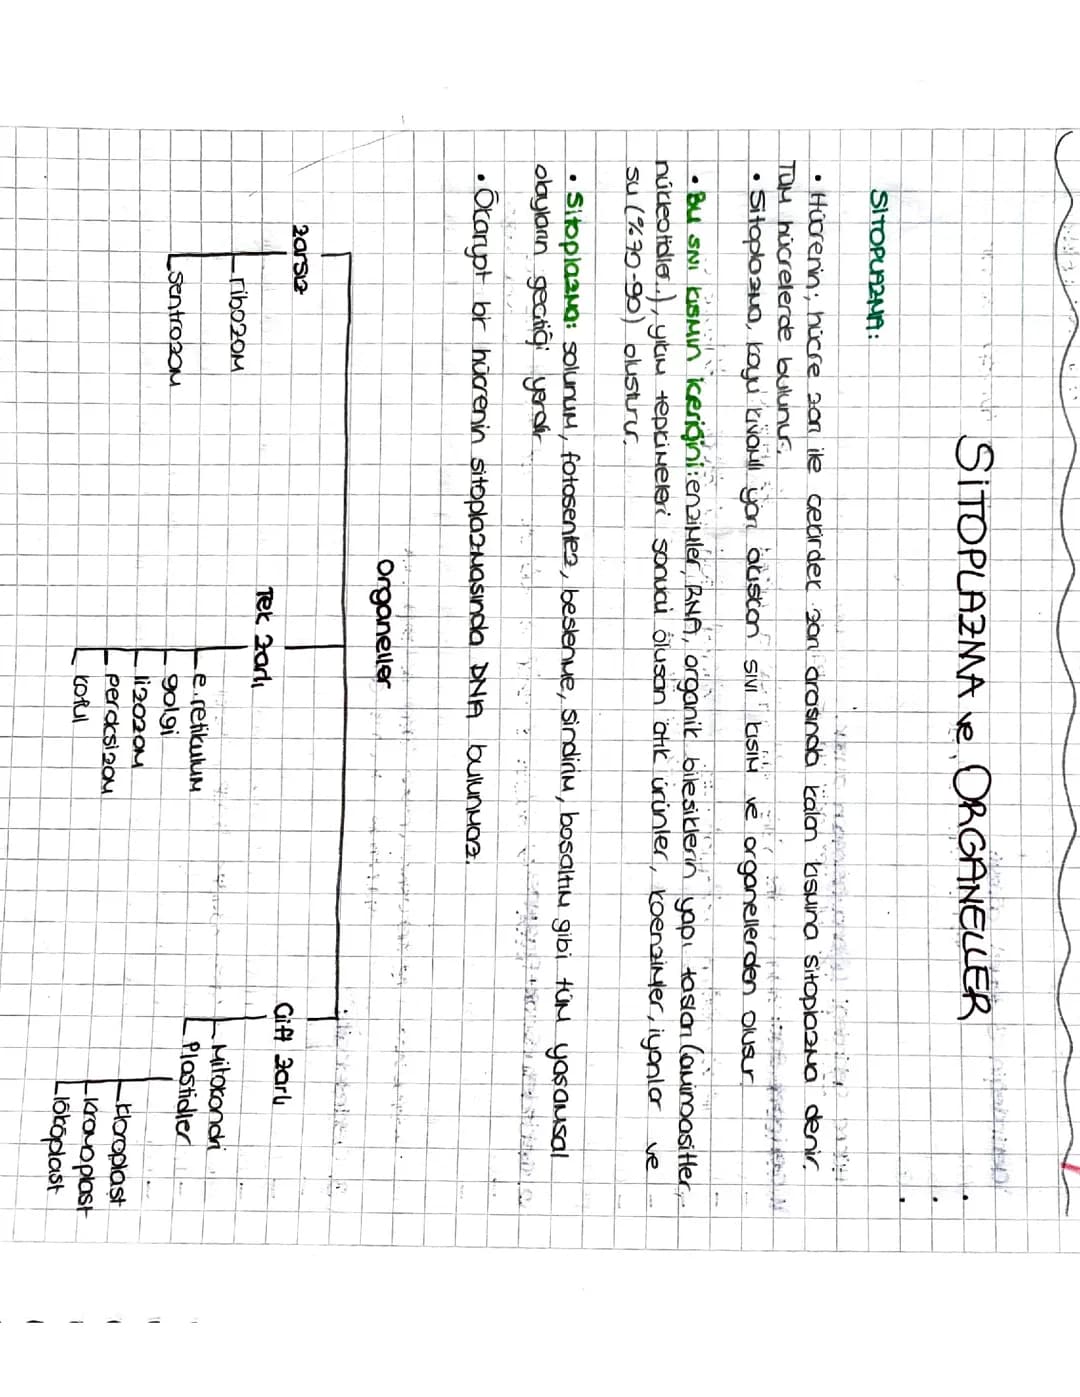 SİTOPLAZMA ve ORGANELLER
SİTOPLAZMA:
• Hücrenin; hücre zarı ile çekirdek zarı arasında kalan kısmına sitoplazma denir.
Tüm hücrelerde bulunur.
• Sitoplazma, koyu kıvamlı yarı akışkan sıvı kısım ve organellerden oluşur.
• Bu sıvı kısmın içeriğini: enzimler, RNA, organik bileşiklerin yapı taşları (aminoasitler,
nükleotidler..), yıkım tepkimeleri sonucu oluşan atık ürünler, koenzimler, iyonlar ve
su (%70-90) oluşturur.
• Sitoplazma: solunum, fotosentez, beslenme, sindirim, boşaltım gibi tüm yaşamsal
olayların geçtiği yerdir.
• Ökaryot bir hücrenin sitoplazmasında DNA bulunmaz.
Organeller
Zarsız
ribozom
sentrozom
Tek zarlı
e.retikulum
golgi
lizozom
peroksizom
koful
Çift zarlı
Mitokondri
Plastidler
kloroplast
kromoplast
lökoplast